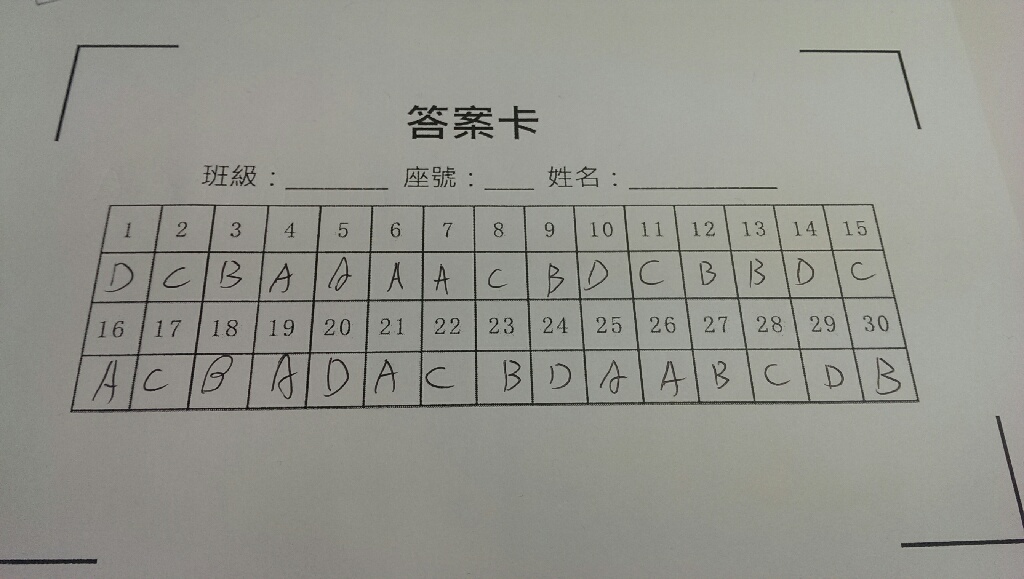 答案卡
班級：________ 座號：____ 姓名：____________
1 2 3 4 5 6 7 8 9 10 11 12 13 14 15
D C B A A A A C B D C B B D C
16 17 18 19 20 21 22 23 24 25 26 27 28 29 30
A C B A D A C B D A A B C D B